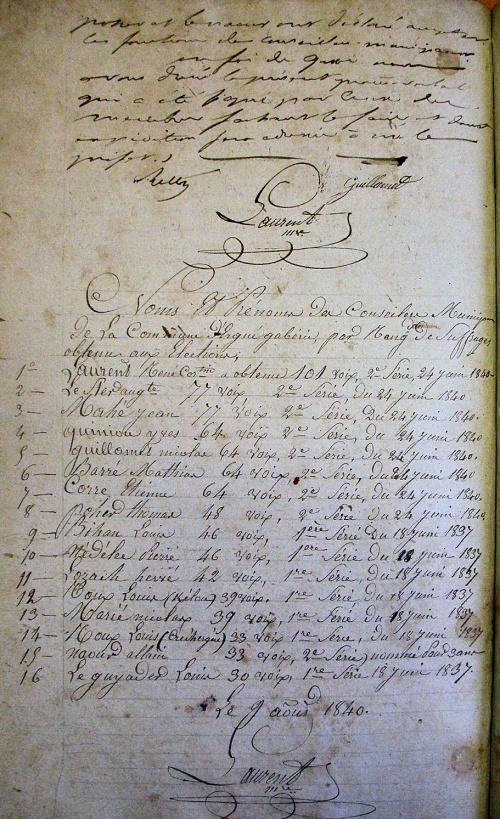 poher et le naour ont déclaré accepter
les fonctions de conseillers municipaux
en foi de quoi nous
avons dressé le présent procès verbal
qui a été signé par ceux des
membres sachant le faire et dont
expédition sera adressée à M. le
préfet.
Guillomet
Laurent
mre
Noms Et Prénoms Des Conseillers Municipaux
De La Commune d'Ergué gabéric par Rang De Suffrages
obtenu aux élections,
1° Laurent René a obtenu 101 voix, 2e Série, 24 juin 1840
2 — Le augte 77 voix 2e Série, du 24 juin 1840
3 — Mahé jean 77 voix 2e Série, du 24 juin 1840.
4 — quiniou yves 64 voix 2e Série, du 24 juin 1840
5 — guillomet nicolas 64 voix, 2e Série, du 24 juin 1840
6 — Barré Mathias 64 voix, 2e Série, du 24 juin 1840
7 — Corre étienne 64 voix, 2e Série, du 24 juin 1840.
8 — poher thomas 48 voix, 2e Série, du 24 juin 1840
9 — Bihan Louis 46 voix, 1ere Série, du 18 juin 1837
10 — hervé 46 voix, 1ere Série du 18 juin 1837
11 — Lozach hervé 42 voix, 1re Série, du 18 juin 1837
12 — Roux Louis 39 voix, 1re Série du 18 juin 1837
13 — Marié nicolas 39 voix, 1re Série du 18 juin 1837
14 — Roux Louis 33 voix 1re Série, du 18 juin 1837
15 — naour allain 33 voix, 2e Série, nommé pour 3 ans
16 Le guyader Louis 30 voix, 1re Série 18 juin 1837.
Le 9 août 1840.
Laurent
mre